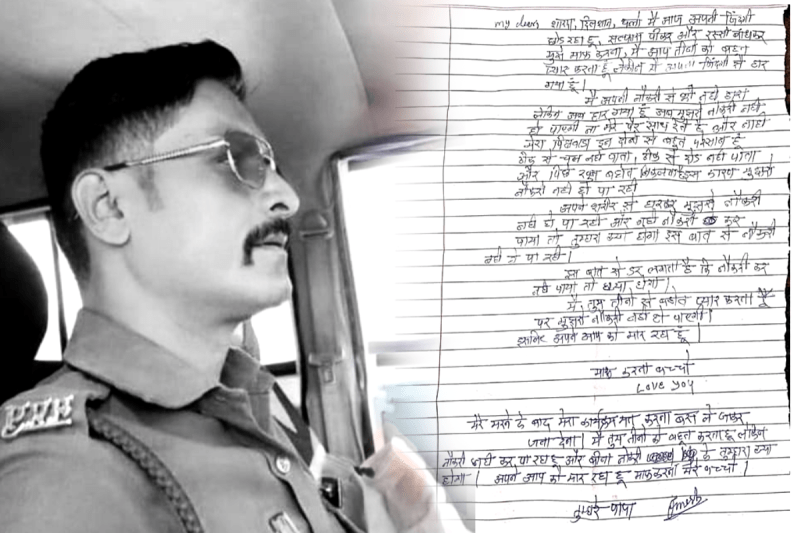 my dear शारदा, दिलशान, चलो मैं आज अपनी जिंदगी
छोड़ रहा हूँ, सल्फास पीकर और रस्सी बांधकर
मुझे माफ करना, मैं आप तीनों को बहुत
प्यार करता हूँ लेकिन मैं अपनी जिंदगी से हार
गया हूँ।
मैं अपनी नौकरी से भी नही हारा
लेकिन अब हार गया हूँ अब मुझसे नौकरी नही
हो पाएगी ना मेरे पैर साथ देते है और नाही
मेरा पिछवाडा इन दोनों से बहुत परेशान हूं
ठीक से चल नही पाता, ठीक से दौड नही पाता
और पिछे खून बहोत कारण मुझसे
नौकरी नही हो पा रही
अपने शरीर से हारकर मुझसे नौकरी
नही हो पा रही और नही नौकरी कर
पाया तो तुम्हारा क्या होगा इस बात से नौकरी
नही हो पा रही।
इस बात से डर लगता है कि नौकरी कर
नही पाया तो क्या होगा।
मैं, तुम तीनों से बहोत प्यार करता हूँ
पर मुझसे नौकरी नही हो पाएगी।
इसलिए अपने आप को मार रहा हूँ।
माफ करना बच्चो
Love you
मेरे मरने के बाद मेरा कार्यक्रम मत करना बस ले जाकर
जला देना। मैं तुम तीनों को बहुत करता हू लेकिन
नौकरी नही कर पा रहा हू और बीना नौकरी के तुम्हारा क्या
होगा। अपने आप को मार रहा हू माफ करना मेरे बच्चो।
तुम्हारे पापा